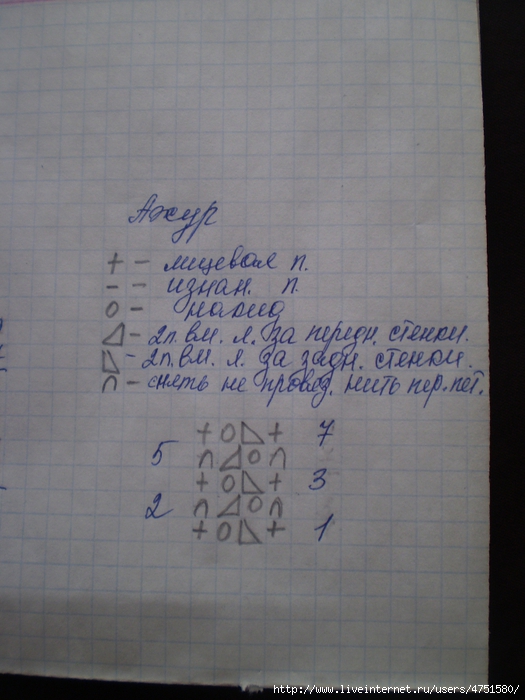 Ажур
+ – лицевая п.
– – изнан. п.
О – накид
◿ – 2п. вм. л. за передн. стенки.
◺ – 2п. вм. л. за задн. стенки.
∩ – снять не провяз. нить пер. пет.
+ О ◺ + 7
5 ∩ ◿ О ∩
+ О ◺ + 3
2 ∩ ◿ О ∩
+ О ◺ + 1
http://www.liveinternet.ru/users/4751580/